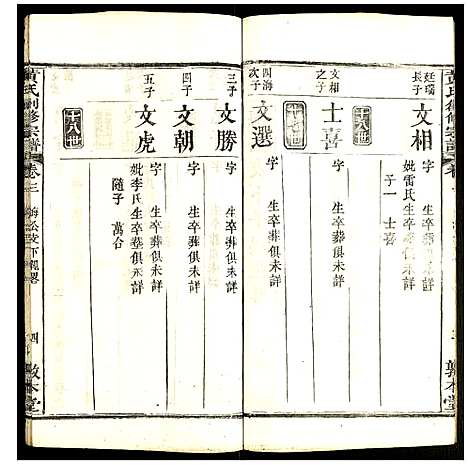 黃氏創修宗譜
廷瑞長子
文相
字
生卒葬俱未詳
妣雷氏生卒葬俱未詳
子一 士喜
十八世
文相之子
士喜
字
生卒葬俱未詳
四海次子
文選
字
生卒葬俱未詳
三子
文勝
字
生卒葬俱未詳
四子
文朝
字
生卒葬俱未詳
五子
文虎
字
生卒葬俱未詳
妣李氏生卒葬俱未詳
隨子 萬合
十八世
黃氏創修宗譜
卷三
四
敦本堂
敦本堂